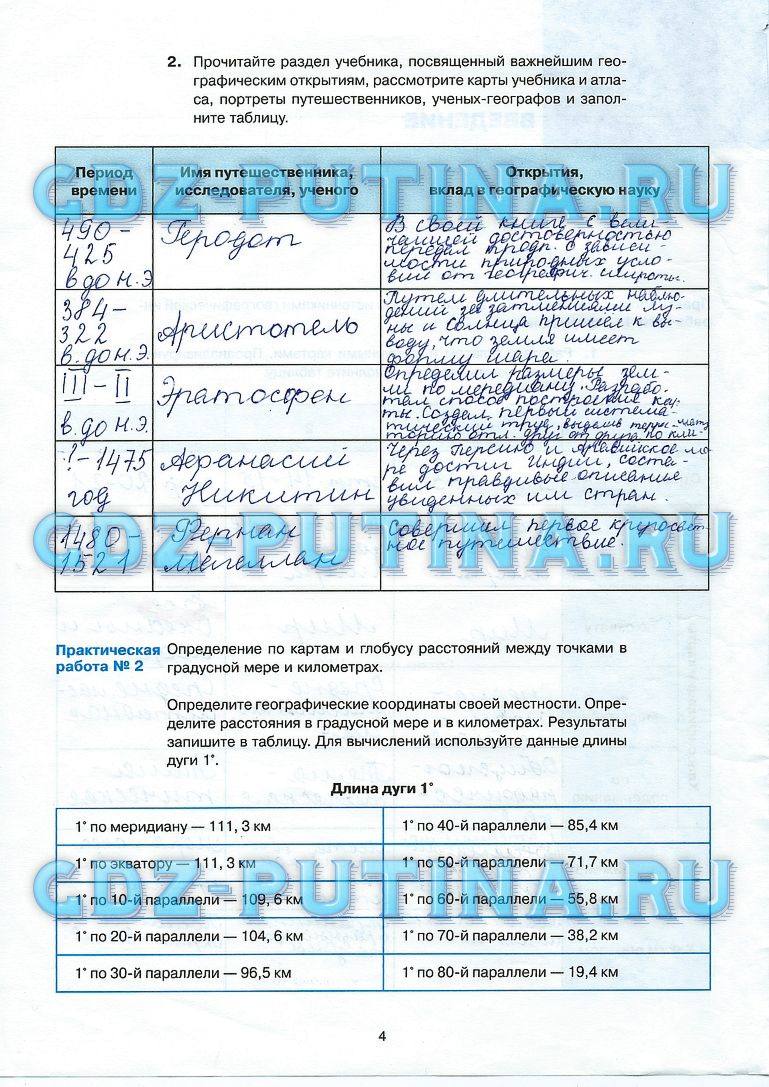 2. Прочитайте раздел учебника, посвященный важнейшим гео-
графическим открытиям, рассмотрите карты учебника и атла-
са, портреты путешественников, ученых-географов и запол-
ните таблицу.
Период
времени
Имя путешественника,
исследователя, ученого
Открытия,
вклад в географическую науку
GDZ-PUTINA.RU
490-
425
в до н.э
Геродот
В своей книге с вели-
чайшей достоверностью
передал предп. о зависи-
мости природных усло-
вий от географич. широты.
384-
322
в. до н.э.
Аристотель
Путем длительных наблю-
дений за затмениями лу-
ны и солнца пришел к вы-
воду, что земля имеет
форму шара
GDZ-PUTINA.RU
III-II
в. до н.э.
Эратосфен
Определил размеры зем-
ли по меридиану. Разрабо-
тал способ построения кар-
ты. Создал первый система-
тический труд, выделив терри-
торию отл. друг от друга по кли-
?-1475
год
Афанасий
Никитин
Через Персию и Аравийское мо-
ре достиг Индии, соста-
вил правдивые описание
увиденных им стран.
GDZ-PUTINA.RU
1480-
1521
Фернан
Магеллан
Совершил первое кругосвет-
ное путешествие.
Практическая
работа № 2
Определение по картам и глобусу расстояний между точками в
градусной мере и километрах.
Определите географические координаты своей местности. Опре-
делите расстояния в градусной мере и в километрах. Результаты
запишите в таблицу. Для вычислений используйте данные длины
дуги 1°.
Длина дуги 1°
1° по меридиану — 111, 3 км
1° по 40-й параллели — 85,4 км
1° по экватору — 111, 3 км
1° по 50-й параллели — 71,7 км
GDZ-PUTINA.RU
1° по 10-й параллели — 109, 6 км
1° по 60-й параллели — 55,8 км
1° по 20-й параллели — 104, 6 км
1° по 70-й параллели — 38,2 км
1° по 30-й параллели — 96,5 км
1° по 80-й параллели — 19,4 км
4